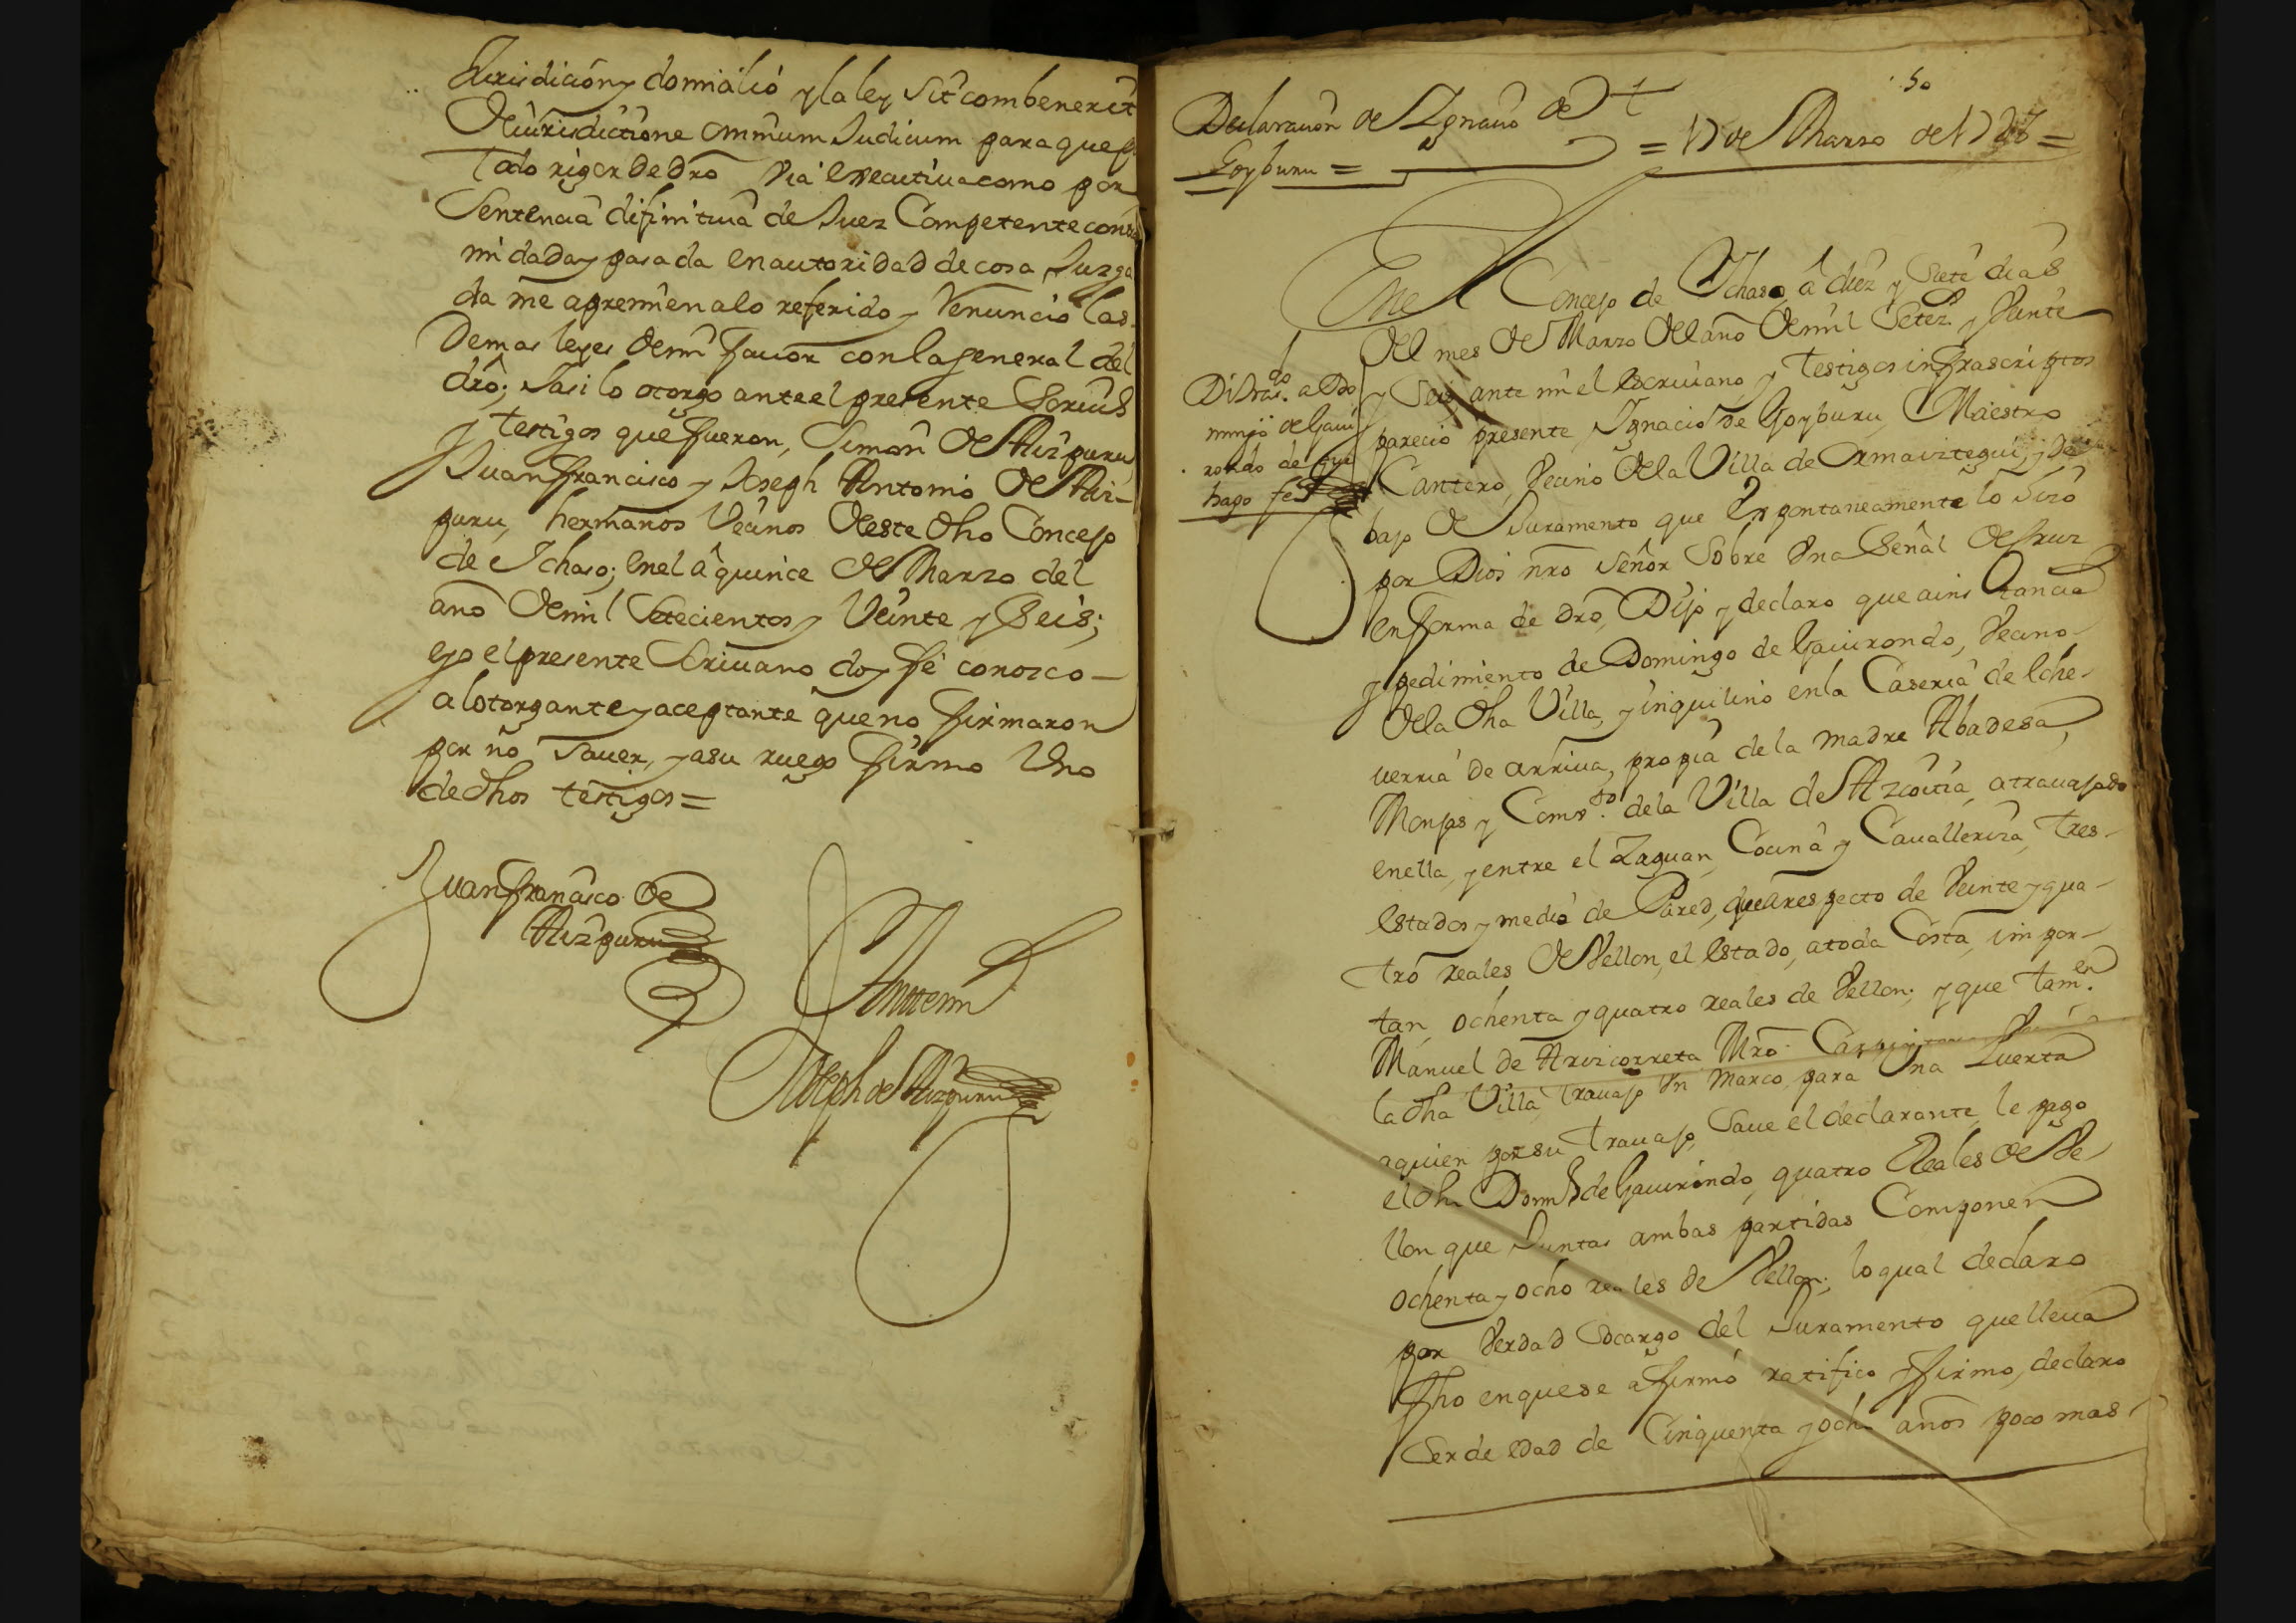 Jurisdición y domicilio y la ley Sit combenerit
de iurisdictione omnium Judicum para que p.
todo rigor de dro Via executiua como por
Sentencia difinitiua de Juez Competente contra
mi dada y pasada en autoridad de cosa Juzga
da me apremien alo referido y Renuncio las
demas leyes de mi fauor con la general del
dro; Jasi lo otorgo ante el presente Scriuo
y testigos que fueron, Simon de Aizpuru
Juan francisco y Joseph Antonio de Aiz-
puru, hermanos Vecinos de este dho Concejo
de Ichaso; enel â quince de Marzo del
año de mil Setecientos y Veinte y Seis;
eyo el presente Scriuano doy fé conozco -
alotorgante y aceptante que no firmaron
por no Sauer, y asu ruego firmo Uno
de dhos testigos =
Juan francisco de
Aizpuru
Antemi
Joseph de Aizpuru
50
Declaracion de Ignacio de
Goyburu =
= 17 de Marzo de 1726 =
Enel Concejo de Ichaso, â diez y Siete dias
del mes de Marzo del año de mil Setez.s y Veinte
y Seis, ante mi el escriuano, y testigos infrascriptos
parecio presente, Ignacio de Goyburu, Maestro
Cantero, Vecino de la Villa de Ormaiztegui, y de
bajo de Juramento que Espontaneamente lo Jizo
por Dios nro Señor Sobre Vna Señal de Cruz
en forma de dro, Dijo y declaro que a ins tancia
y pedimiento de Domingo de Gauirondo, Vecino
de la dha Villa, y inquilino en la Caseria de Eche-
uerria de arriua, propia de la madre Abadesa,
Monjas y Comv.to de la Villa de Azcoitia, a trauajado
enella, y entre el Zaguan, Cocina y Caualleriza, tres-
estados y medio de Pared, que a respecto de Veinte y qua-
tro reales de Vellon, el estado, a toda Costa, impor-
tan, ochenta y quatro reales de Vellon; y que tam.en
Manuel de Arizcorreta Mro. Carpintero
la dha Villa, trauajo Vn Marco, para Vna Puerta
aquien por su trauajo, Saue el declarante, le pago
el dho Dom.o de Gauirondo, quatro Reales de Ve
llon que Juntas ambas partidas Componen
ochenta y ocho reales de Vellon; lo qual declaro
por Verdad Socargo del Juramento que lleua
fho en que se afirmó ratifico y firmo, declaro
Ser de edad de Cinquenta y ocho años poco mas
Di tras.do a Do
mingo de Gaui
rondo de que
hago fe